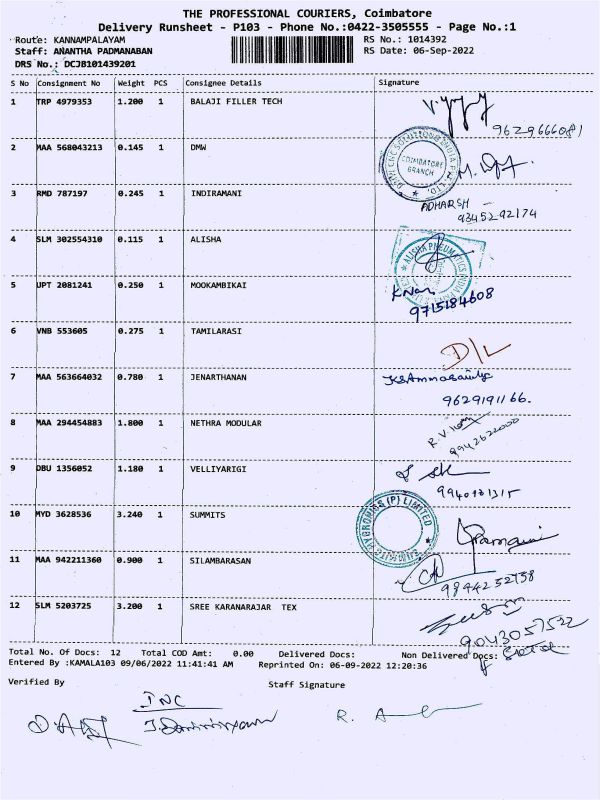 THE PROFESSIONAL COURIERS, Coimbatore
Delivery Runsheet - P103 - Phone No.:0422-3505555 - Page No.:1
Route: KANNAMPALAYAM RS No.: 1014392
Staff: ANANTHA PADMANABAN RS Date: 06-Sep-2022
DRS No.: DCJB101439201
S No Consignment No Weight PCS Consignee Details Signature
1 TRP 4979353 1.200 1 BALAJI FILLER TECH
9629666081
2 MAA 568043213 0.145 1 DMW
COIMBATORE BRANCH
3 RMD 787197 0.245 1 INDIRAMANI
ADHARSH -
9345292174
4 SLM 302554310 0.115 1 ALISHA
ALISHA PNEUMATICS
5 UPT 2081241 0.250 1 MOOKAMBIKAI
9715184608
6 VNB 553605 0.275 1 TAMILARASI
D/L
7 MAA 563664032 0.780 1 JENARTHANAN
9629191166.
8 MAA 294454883 1.800 1 NETHRA MODULAR
9942622000
9 DBU 1356052 1.180 1 VELLIYARIGI
10 MYD 3628536 3.240 1 SUMMITS
SUMMITS HYGRONICS (P) LIMITED
11 MAA 942211360 0.900 1 SILAMBARASAN
9894252758
12 SLM 5203725 3.200 1 SREE KARANARAJAR TEX
9043057522
Total No. Of Docs: 12 Total COD Amt: 0.00 Delivered Docs: Non Delivered Docs:
Entered By :KAMALA103 09/06/2022 11:41:41 AM Reprinted On: 06-09-2022 12:20:36
Verified By Staff Signature
INC